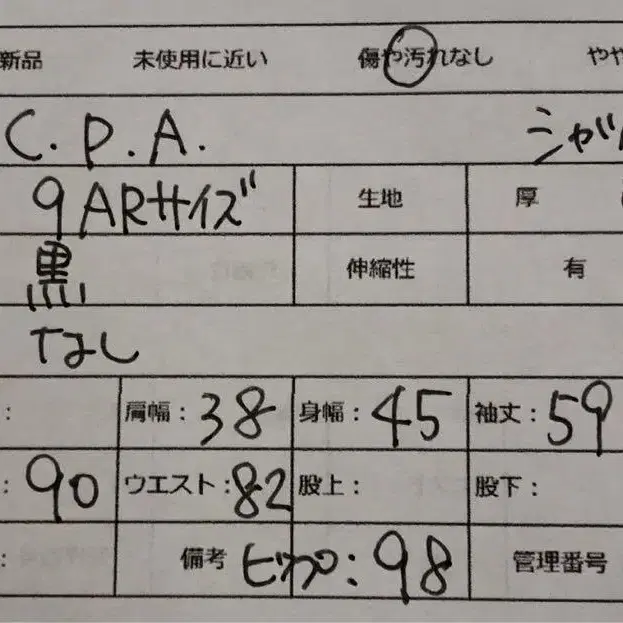 新品 未使用に近い 傷や汚れなし やや
C.P.A. シャツ
9ARサイズ 生地 厚
黒 伸縮性 有
なし
: 肩幅:38 身幅:45 袖丈:59
:90 ウエスト:82 股上: 股下:
: 備考 ヒップ:98 管理番号